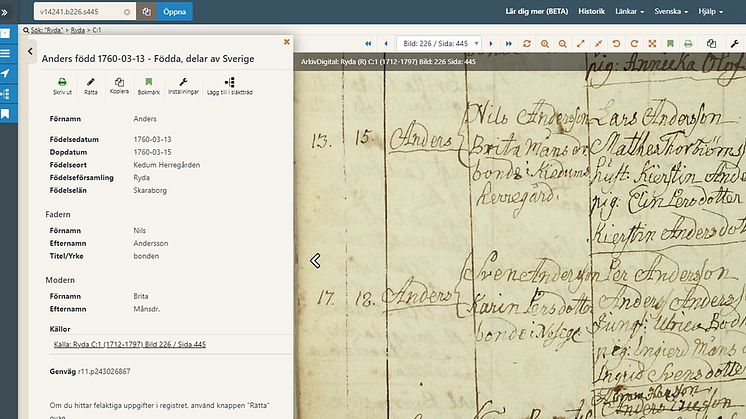 v14241.b226.s445
Öppna
Lär dig mer (BETA)
Historik
Länkar
Svenska
Hjälp
Sök: "Ryda" > Ryda > C:1
Anders född 1760-03-13 - Födda, delar av Sverige
Skriv ut
Rätta
Kopiera
Bokmärk
Inställningar
Lägg till i släktträd
Förnamn Anders
Födelsedatum 1760-03-13
Dopdatum 1760-03-15
Födelseort Kedum Herregården
Födelseförsamling Ryda
Födelselän Skaraborg
Fadern
Förnamn Nils
Efternamn Andersson
Titel/Yrke bonden
Modern
Förnamn Brita
Efternamn Månsdr.
Källor
Källa: Ryda C:1 (1712-1797) Bild 226 / Sida 445
Genväg r11.p243026867
Om du hittar felaktiga uppgifter i registret, använd knappen "Rätta"
ovan.
Bild: 226 Sida: 445
ArkivDigital: Ryda (R) C:1 (1712-1797) Bild: 226 Sida: 445
pig: Annicka Olofs
13. 15. Anders
Nils Andersson
Brita Måns
bonde i Kiedums
herregård.
Lars Andersson
Hust: Kierstin Ande
pig: Elin Persdotter
Kierstin Andersdot
17. 18. Anders
Sven Andersson
Karin Persdotter
bonde i
Per Andersson
Anders Anders
Jungf: Ulrica Bod
pig: Ingierd Måns
Ingrid Svensdotter